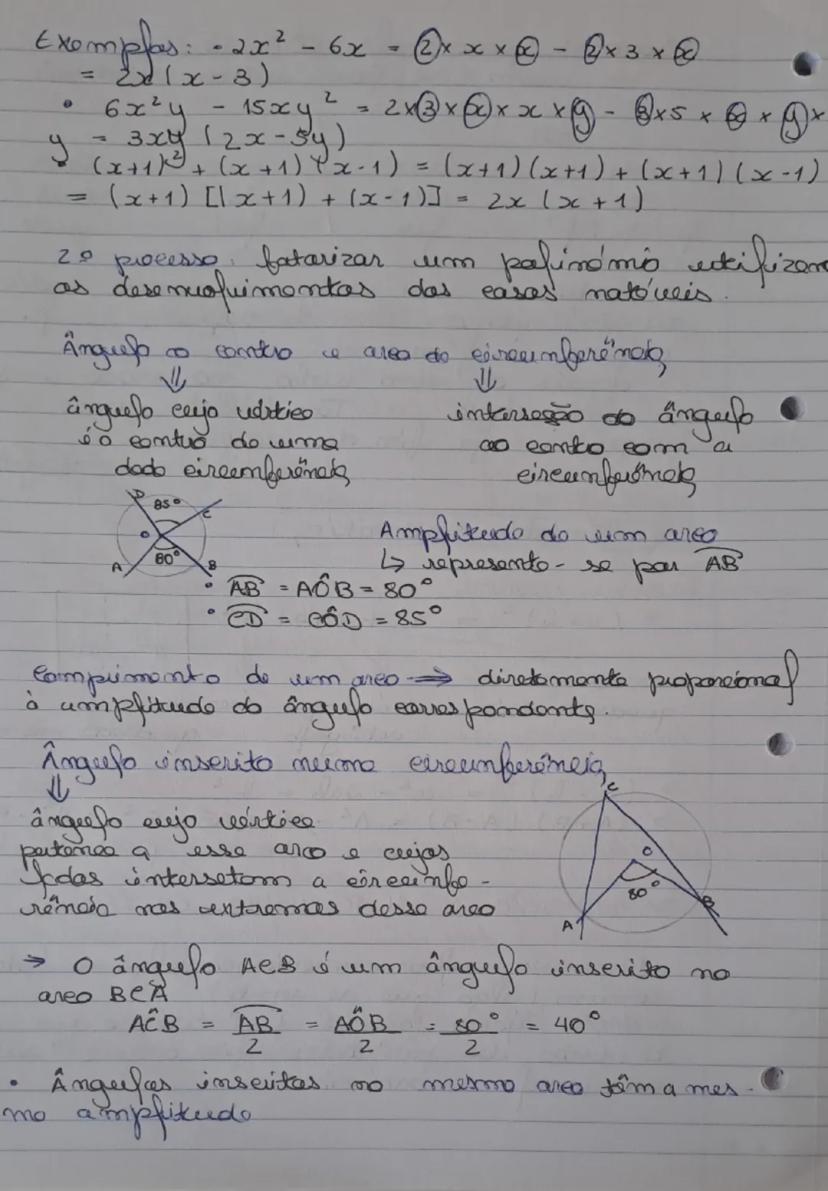 Exemplos: • 2x² - 6x = 2 × x × x - 2 × 3 × x
= 2x (x - 3)
• 6x²y - 15xy² = 2 × 3 × x × x × y - 3 × 5 × x × y ×
y = 3xy (2x - 5y)
(x+1)² + (x+1)(x-1) = (x+1)(x+1) + (x+1)(x-1)
= (x+1) [(x+1) + (x-1)] = 2x (x+1)
2º processo: fatorizar um polinómio utilizam
os desenvolvimentos dos casos notáveis.
Ângulo ao centro e arco de circunferência
⇓ ⇓
ângulo cujo vértice interseção do ângulo
é o centro de uma ao centro com a
dada circunferência circunferência
D 85° C
O
A 80° B
Amplitude de um arco
↳ representa-se por AB
• AB = AÔB = 80°
• CD = CÔD = 85°
Comprimento de um arco ⇒ diretamente proporcional
à amplitude do ângulo correspondente.
Ângulo inscrito numa circunferência
⇓
ângulo cujo vértice
pertence a esse arco e cujos
lados intersetam a circunfe-
rência nos extremos desse arco
C
O
80°
A B
→ O ângulo ACB é um ângulo inscrito no
arco BCA
AĈB = AB/2 = AÔB/2 = 80°/2 = 40°
• Ângulos inscritos no mesmo arco têm a mes-
mo amplitude